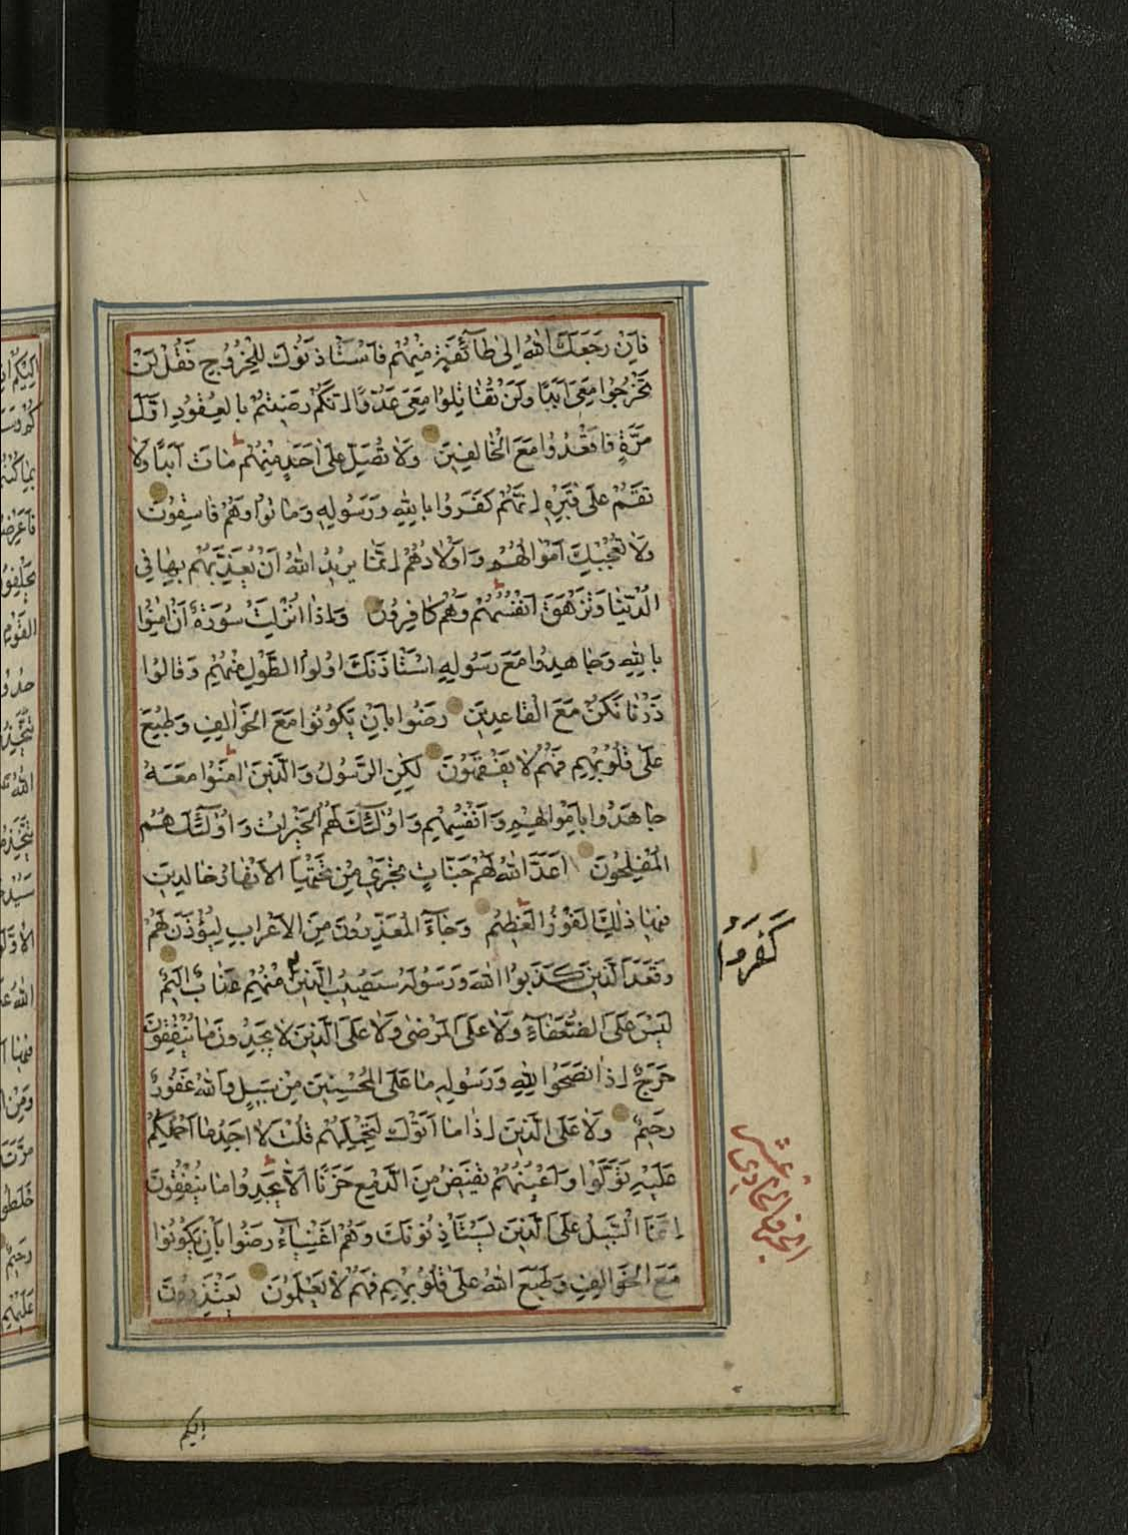 فَاِنْ رَجَعَكَ اللهُ اِلىٰ طَآئِفَةٍ مِنْهُمْ فَاسْتَأْذَنُوكَ لِلْخُرُوجِ فَقُلْ لَنْ
تَخْرُجُوا مَعِيَ اَبَدًا وَلَنْ تُقَاتِلُوا مَعِيَ عَدُوًّا اِنَّكُمْ رَضِيتُمْ بِالْقُعُودِ اَوَّلَ
مَرَّةٍ فَاقْعُدُوا مَعَ الْخَالِفِينَ وَلَا تُصَلِّ عَلىٰ اَحَدٍ مِنْهُمْ مَاتَ اَبَدًا وَلَا
تَقُمْ عَلىٰ قَبْرِهِ اِنَّهُمْ كَفَرُوا بِاللهِ وَرَسُولِهِ وَمَاتُوا وَهُمْ فَاسِقُونَ
وَلَا تُعْجِبْكَ اَمْوَالُهُمْ وَاَوْلَادُهُمْ اِنَّمَا يُرِيدُ اللهُ اَنْ يُعَذِّبَهُمْ بِهَا فِي
الدُّنْيَا وَتَزْهَقَ اَنْفُسُهُمْ وَهُمْ كَافِرُونَ وَاِذَا اُنْزِلَتْ سُورَةٌ اَنْ اٰمِنُوا
بِاللهِ وَجَاهِدُوا مَعَ رَسُولِهِ اسْتَأْذَنَكَ اُولُوا الطَّوْلِ مِنْهُمْ وَقَالُوا
ذَرْنَا نَكُنْ مَعَ الْقَاعِدِينَ رَضُوا بِاَنْ يَكُونُوا مَعَ الْخَوَالِفِ وَطُبِعَ
عَلىٰ قُلُوبِهِمْ فَهُمْ لَا يَفْقَهُونَ لٰكِنِ الرَّسُولُ وَالَّذِينَ اٰمَنُوا مَعَهُ
جَاهَدُوا بِاَمْوَالِهِمْ وَاَنْفُسِهِمْ وَاُولٰئِكَ لَهُمُ الْخَيْرَاتُ وَاُولٰئِكَ هُمُ
الْمُفْلِحُونَ اَعَدَّ اللهُ لَهُمْ جَنَّاتٍ تَجْرِي مِنْ تَحْتِهَا الْاَنْهَارُ خَالِدِينَ
فِيهَا ذٰلِكَ الْفَوْزُ الْعَظِيمُ وَجَآءَ الْمُعَذِّرُونَ مِنَ الْاَعْرَابِ لِيُؤْذَنَ لَهُمْ
وَقَعَدَ الَّذِينَ كَذَبُوا اللهَ وَرَسُولَهُ سَيُصِيبُ الَّذِينَ مِنْهُمْ عَذَابٌ اَلِيمٌ
كَفَرُوا
لَيْسَ عَلَى الضُّعَفَآءِ وَلَا عَلَى الْمَرْضىٰ وَلَا عَلَى الَّذِينَ لَا يَجِدُونَ مَا يُنْفِقُونَ
حَرَجٌ اِذَا نَصَحُوا لِلهِ وَرَسُولِهِ مَا عَلَى الْمُحْسِنِينَ مِنْ سَبِيلٍ وَاللهُ غَفُورٌ
رَحِيمٌ وَلَا عَلَى الَّذِينَ اِذَا مَا اَتَوْكَ لِتَحْمِلَهُمْ قُلْتَ لَا اَجِدُ مَا اَحْمِلُكُمْ
عَلَيْهِ تَوَلَّوْا وَاَعْيُنُهُمْ تَفِيضُ مِنَ الدَّمْعِ حَزَنًا اَلَّا يَجِدُوا مَا يُنْفِقُونَ
اِنَّمَا السَّبِيلُ عَلَى الَّذِينَ يَسْتَأْذِنُونَكَ وَهُمْ اَغْنِيَآءُ رَضُوا بِاَنْ يَكُونُوا
مَعَ الْخَوَالِفِ وَطَبَعَ اللهُ عَلىٰ قُلُوبِهِمْ فَهُمْ لَا يَعْلَمُونَ يَعْتَذِرُونَ
الجزء الحادي عشر
اليكم